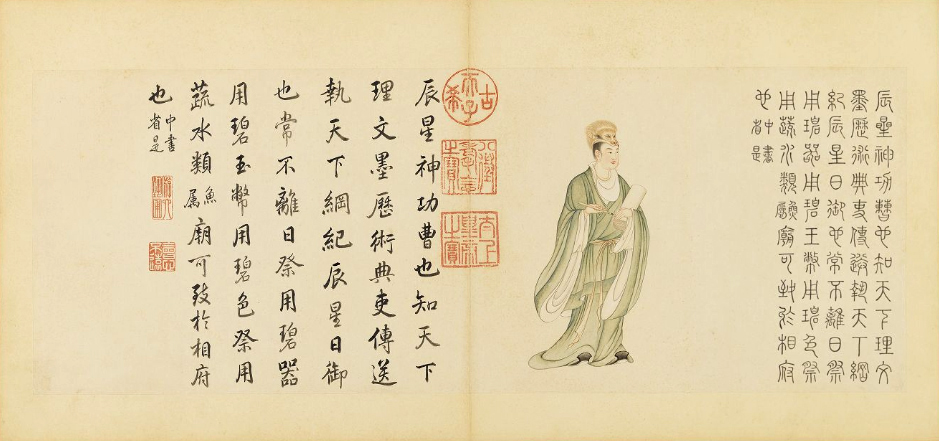 辰星神功曹也知天下理文
墨歷術典吏傳送執天下綱
紀辰星日御也常不離日祭
用碧器用碧玉幣用碧色祭
用蔬水類魚屬廟可致於相府
也中書省是
古希天子
八徵耄念之寶
太上皇帝之寶
辰星神功曹也知天下
理文墨歷術典吏傳送
執天下綱紀辰星日御
也常不離日祭用碧器
用碧玉幣用碧色祭用
蔬水類魚屬廟可致於相府
也中書省是